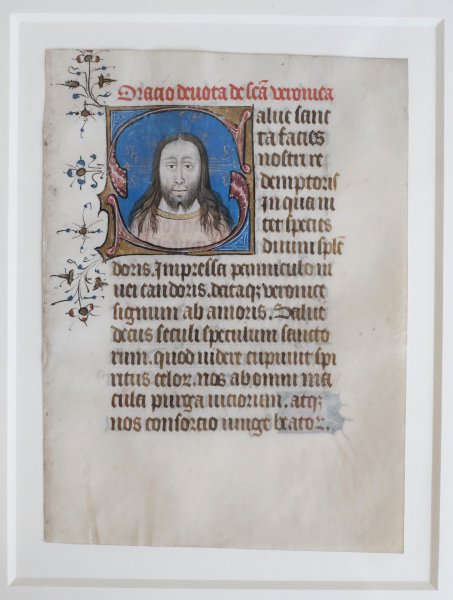 Oracio deuota de scā veronica
Salue sanc
ta facies
nostri re
demptoris
In qua ni
tet species
diuini splē
doris. Impressa panniculo ni
uei candoris. dataqꝫ veronice
signum ab amoris. Salue
decus seculi speculum sancto
rum. quod uidere cupiunt spi
ritus celoꝝ. nos ab omni ma
cula purga uicioꝝum. atqꝫ
nos consorcio iunge beatoꝝ.